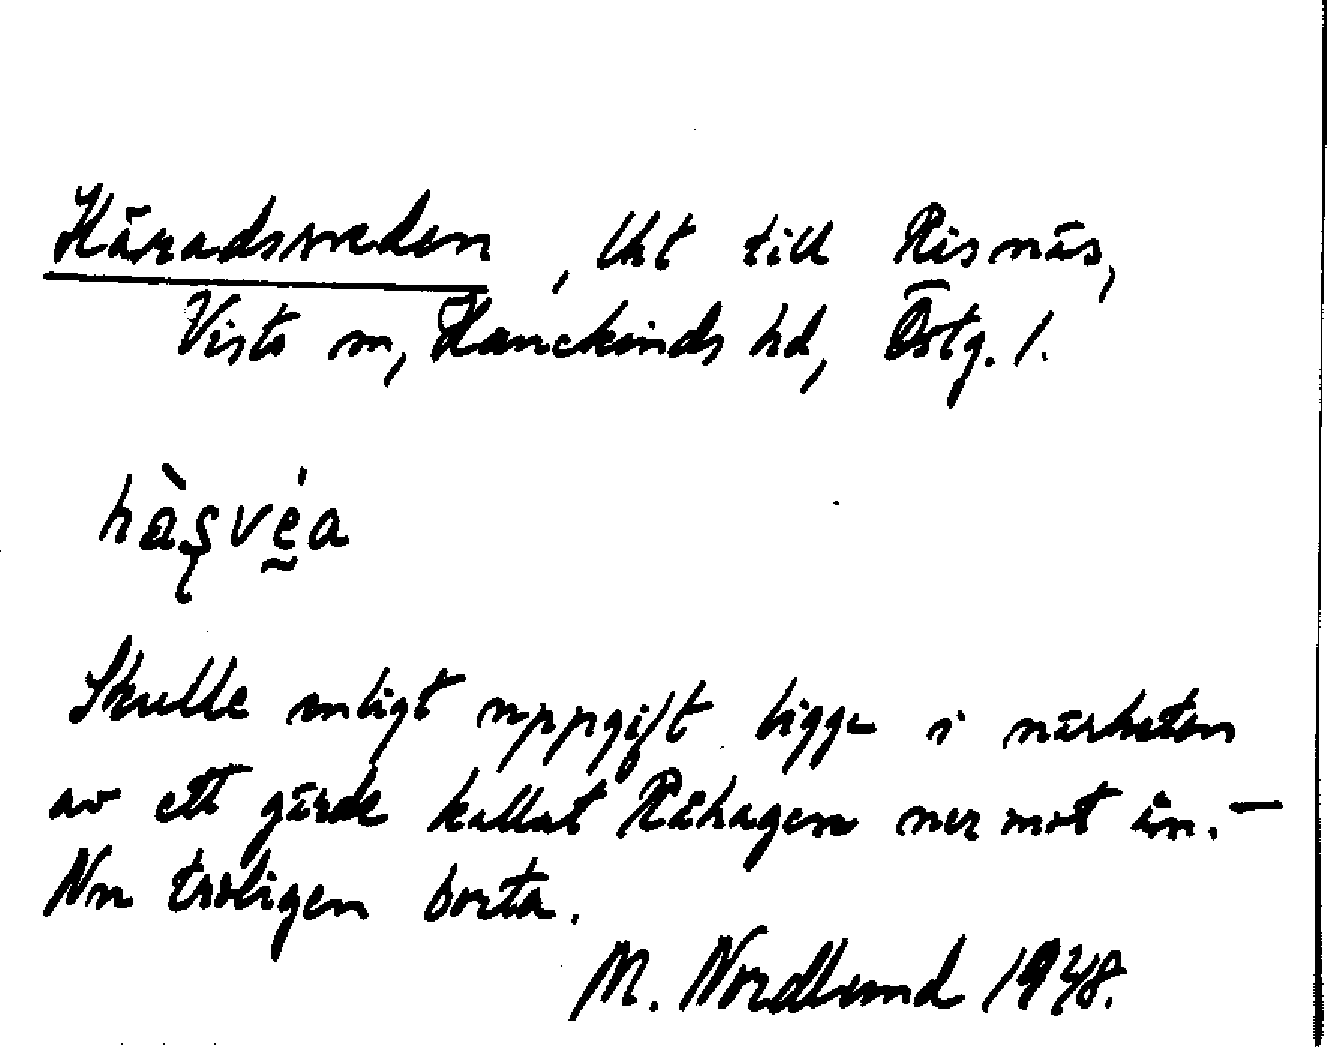 Häradsveden, lht till Risnäs,
Vists sn, Hanekinds hd, Östg. l.
hàșvéa
Skulle enligt uppgift ligga i närheten
av ett gärde kallat Råhagen ner mot ån. –
Nu troligen borta.
M. Nordlund 1948.